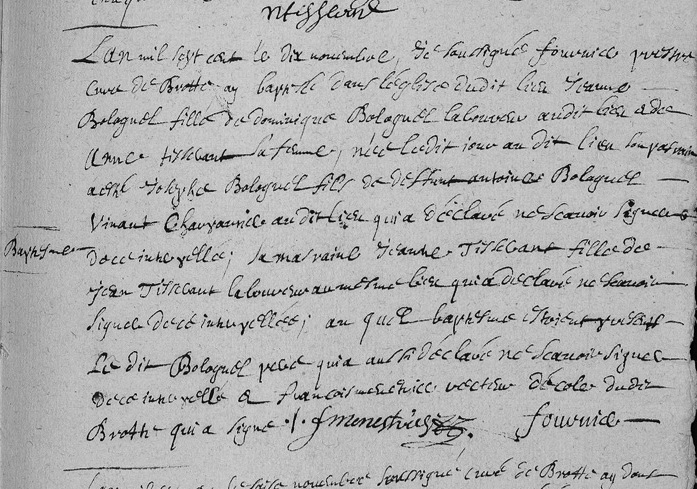 L'an mil sept cent le dix novembre, Je soussigné fournier prestre
curé de Brotte ay baptisé dans l'église dudit lieu Jeanne
Bologuel fille de dominique Bologuel laboureur audit lieu & de
Anne Tisserant sa femme, née ledit jour audit lieu son parrain
a esté Josephe Bologuel fils de deffunt antoine Bologuel
vivant Charpantier audit lieu qui a déclaré ne scavoir signer
Baptesme
de ce interpellé; sa marraine Jeanne Tisserant fille de
Jean Tisserant laboureur au mesme lieu qui a déclaré ne scavoir
signer de ce interpellée; au quel baptesme estoient presents
Le dit Bologuel pere qui a aussi déclaré ne scavoir signer
de ce interpellé & francois menestrier recteur d'école dudit
Brotte qui a signé ./. f menestrier fournier
novembre soussigné curé de Brotte ay